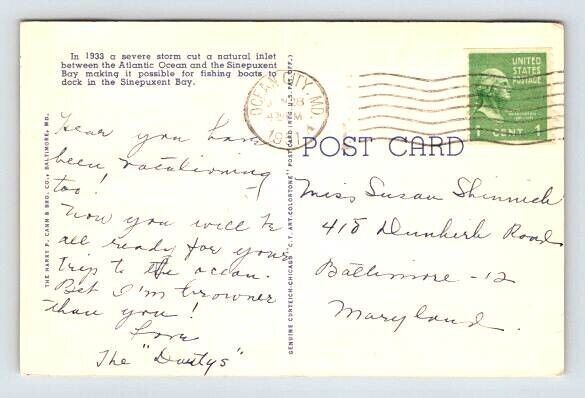 In 1933 a severe storm cut a natural inlet
between the Atlantic Ocean and the Sinepuxent
Bay making it possible for fishing boats to
dock in the Sinepuxent Bay.
Hear you have
been vacationing
too!
Now you will be
all ready for your
trip to the ocean.
Bet I'm browner
than you!
Love
The "Doutys"
THE HARRY P. CANN & BRO. CO., BALTIMORE, MD.
GENUINE CURTEICH-CHICAGO "C.T. ART-COLORTONE" POST CARD (REG. U.S. PAT. OFF.)
OCEAN CITY, MD.
1951
UNITED
STATES
POSTAGE
1 CENT 1
POST CARD
Miss Susan Shinnick
418 Dunkirk Road
Baltimore - 12
Maryland.